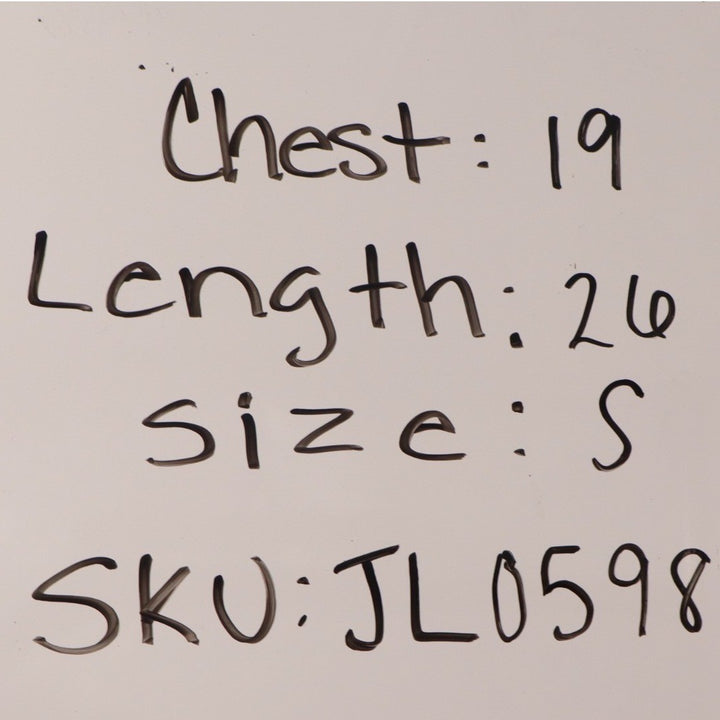 Chest: 19
Length: 26
Size: S
SKU: JL0598